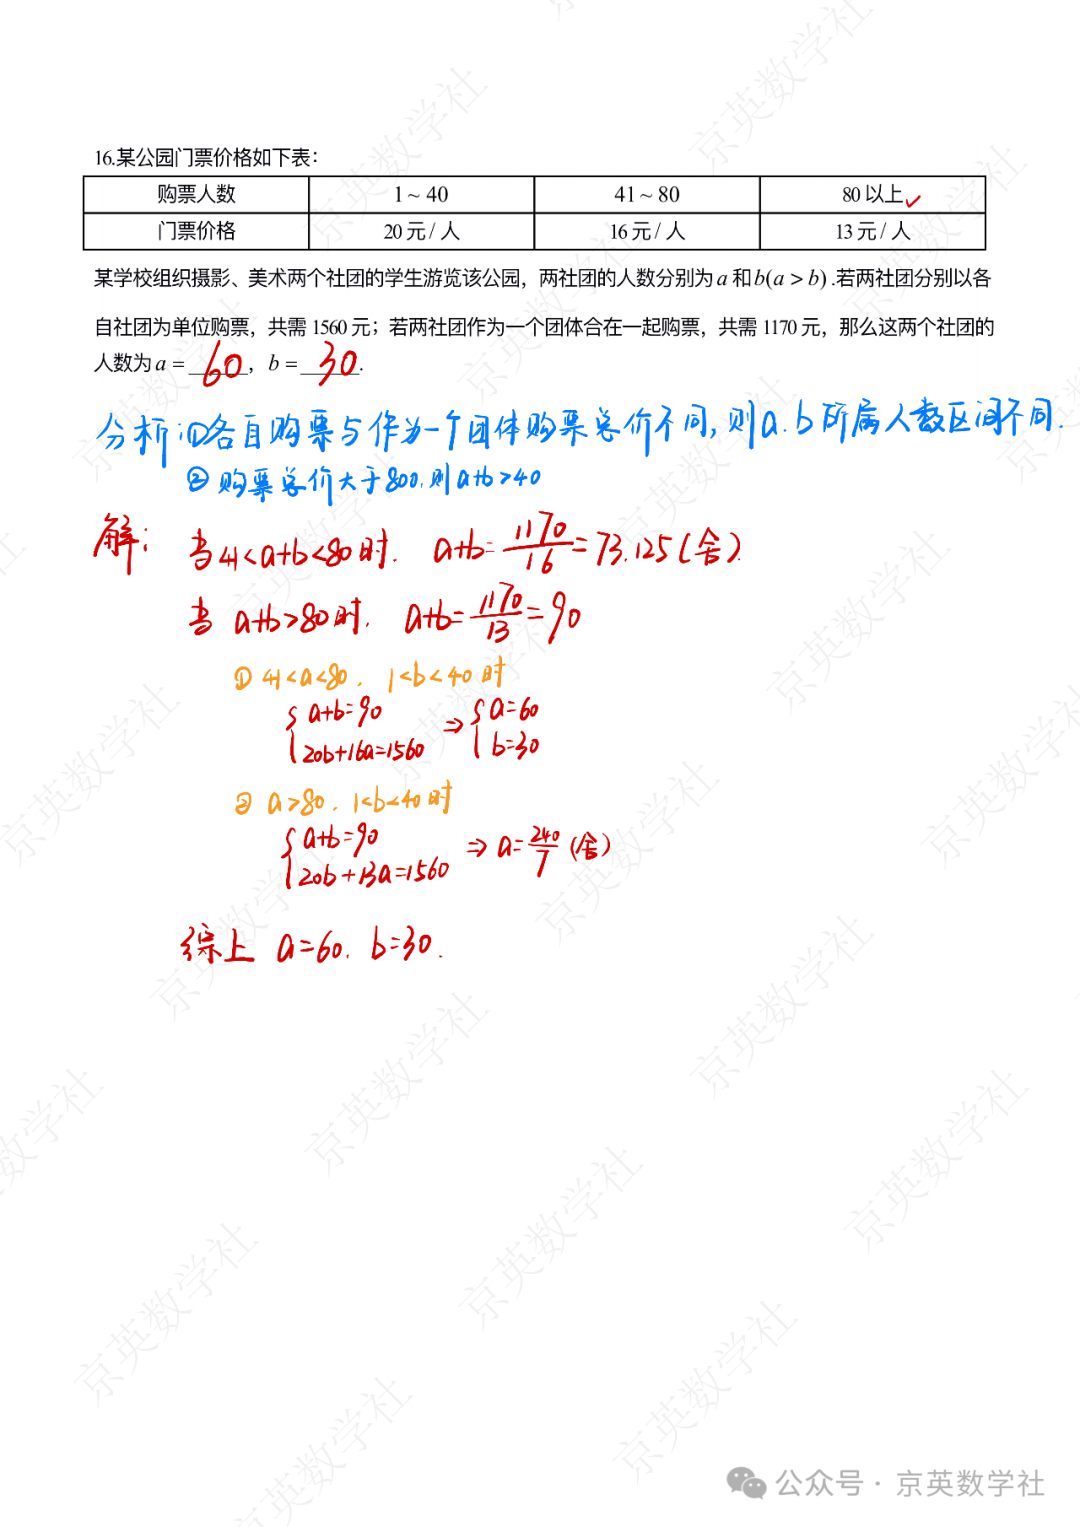 16.某公园门票价格如下表:
购票人数 1 ~ 40 41 ~ 80 80 以上 ✓
门票价格 20 元 / 人 16 元 / 人 13 元 / 人
某学校组织摄影、美术两个社团的学生游览该公园，两社团的人数分别为 a 和 b(a > b) .若两社团分别以各
自社团为单位购票，共需 1560 元；若两社团作为一个团体合在一起购票，共需 1170 元，那么这两个社团的
人数为 a = 60，b = 30.
分析:①各自购票与作为一个团体购票总价不同,则a.b所属人数区间不同.
②购票总价大于800,则a+b>40
解: 当41<a+b<80时. a+b=1170/16=73.125(舍)
当a+b>80时. a+b=1170/13=90
① 41<a<80. 1<b<40时
{a+b=90 ⇒ {a=60
20b+16a=1560 b=30
② a>80. 1<b<40时
{a+b=90 ⇒ a=240/7 (舍)
20b+13a=1560
综上 a=60. b=30.
公众号 · 京英数学社
京英数学社